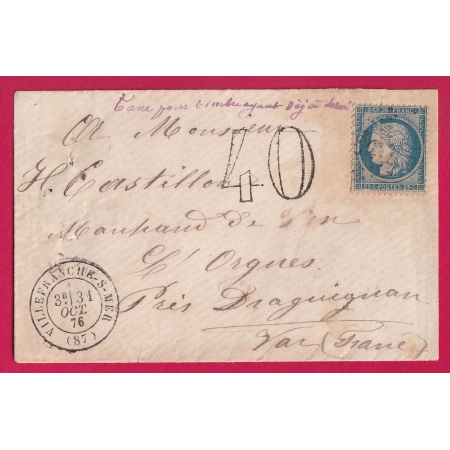 Taxe pour timbre ayant déjà servi
A Monsieur
REPUB. FRANC.
40
H. Castillon
25 C. POSTES 25 C.
Marchand de Vin
L'Orgues
VILLEFRANCHE-S-MER
3E 31
OCT.
76
(87)
Près Draguignan
Var (France)